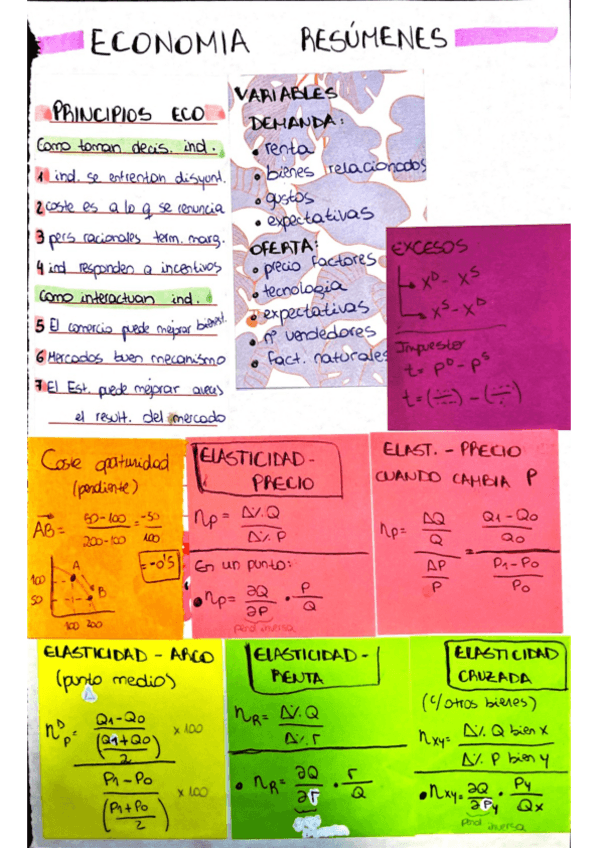 ECONOMIA RESÚMENES
PRINCIPIOS ECO
Como toman decis. ind.
1 ind. se enfrentan disyunt.
2 coste es a lo q se renuncia
3 pers racionales term. marg.
4 ind responden a incentivos
Como interactuan ind.
5 El comercio puede mejorar bienest.
6 Mercados buen mecanismo
7 El Est. puede mejorar aveces
el result. del mercado
VARIABLES
DEMANDA:
• renta
• bienes relacionados
• gustos
• expectativas
OFERTA:
• precio factores
• tecnologia
• expectativas
• nº vendedores
• fact. naturales
EXCESOS
X^D - X^S
X^S - X^D
Impuesto
t = P^D - P^S
t = (---) - (---)
Coste oportunidad
(pendiente)
AB = 50-100 / 200-100 = -50 / 100
= -0'5
100
50
A
B
100 200
ELASTICIDAD-
PRECIO
np = Δ% Q / Δ% P
En un punto:
• np = ∂Q / ∂P · P / Q
pend inversa
ELAST. - PRECIO
CUANDO CAMBIA P
np = ΔQ / Q / ΔP / P = Q1-Q0 / Q0 / P1-P0 / P0
ELASTICIDAD - ARCO
(punto medio)
n^D p = Q1-Q0 / (Q1+Q0 / 2) x 100
P1-P0 / (P1+P0 / 2) x 100
ELASTICIDAD -
RENTA
nR = Δ% Q / Δ% r
• nR = ∂Q / ∂r · r / Q
ELASTICIDAD
CRUZADA
(c/otros bienes)
nxy = Δ% Q bien x / Δ% P bien y
• nxy = ∂Q / ∂Py · Py / Qx
pend inversa